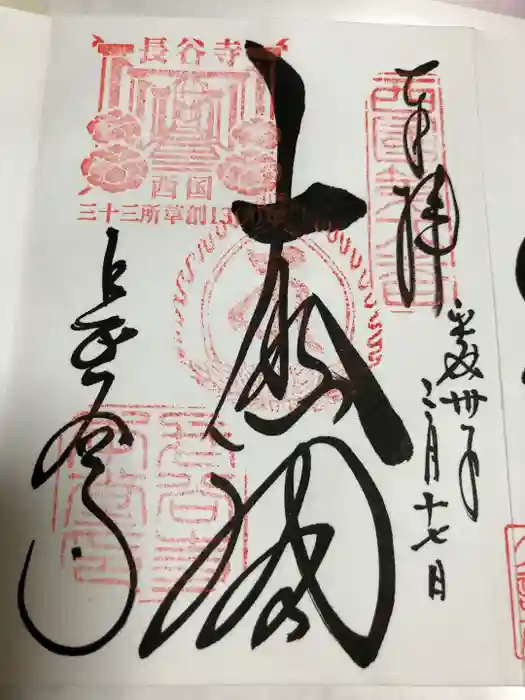 奉拝
平成卅年
三月十七日
西国第八番
大悲閣
長谷寺
西国
三十三所草創1300年
長谷寺